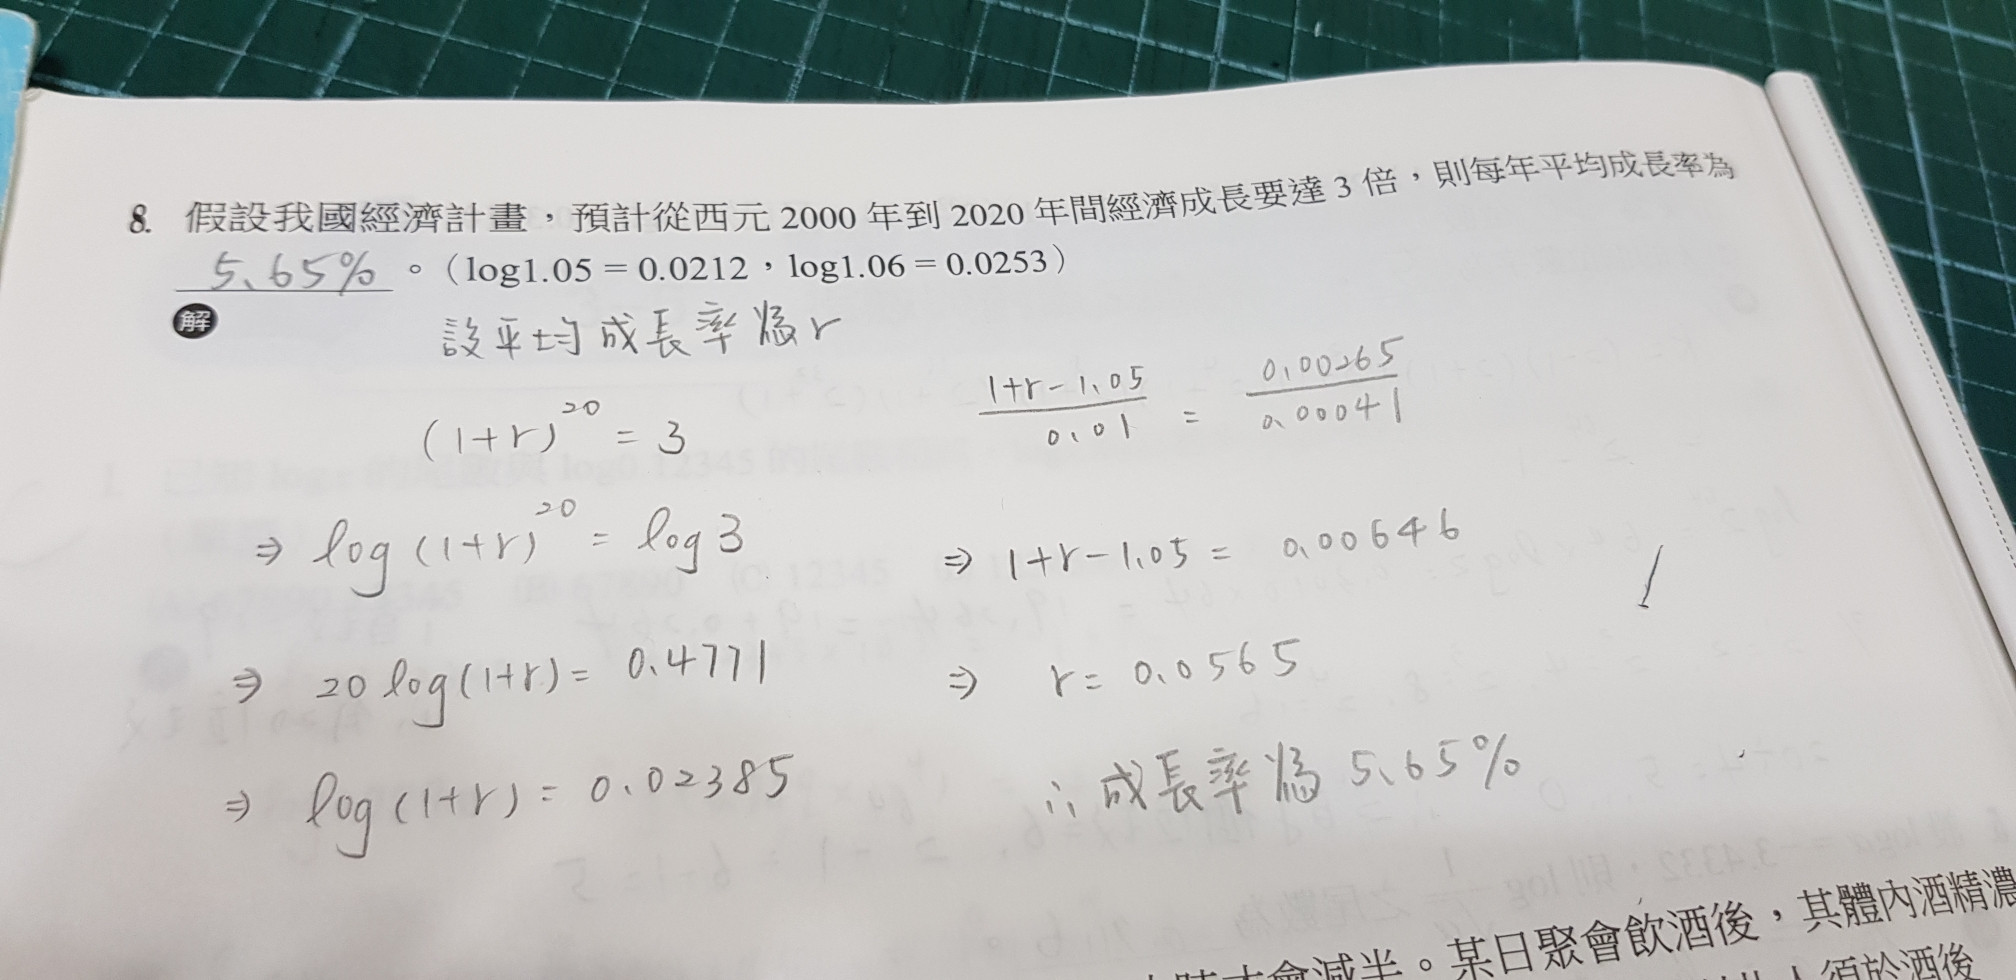 8. 假設我國經濟計畫，預計從西元 2000 年到 2020 年間經濟成長要達 3 倍，則每年平均成長率為
5.65% 。（log1.05 = 0.0212，log1.06 = 0.0253）
解
設平均成長率為r
(1+r)^20 = 3
⇒ log(1+r)^20 = log3
⇒ 20 log(1+r) = 0.4771
⇒ log(1+r) = 0.02385
(1+r-1.05)/0.01 = 0.00265/0.00041
⇒ 1+r-1.05 = 0.00646
⇒ r = 0.0565
∴ 成長率為 5.65%
會減半。某日聚會飲酒後，其體內酒精濃
須於酒後